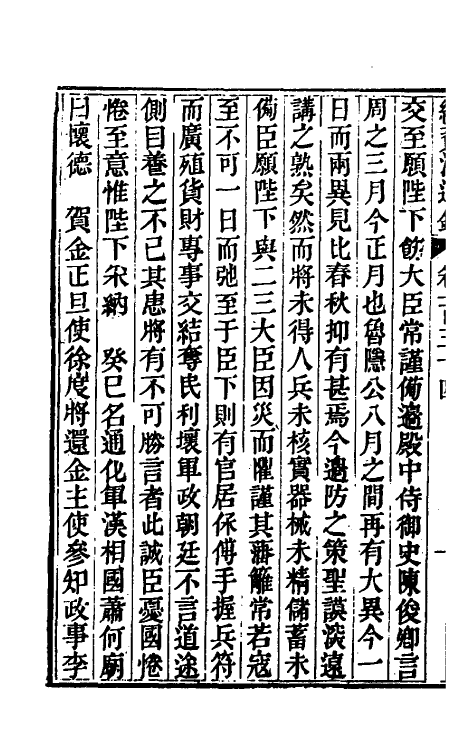 續資治通鑑 卷一百三十四
交至願陛下飭大臣常謹備邊殿中侍御史陳俊卿言
周之三月今正月也魯隱公八月之間再有大異今一
日而兩異見比春秋抑有甚焉今邊防之策聖謨深遠
講之熟矣然而將未得人兵未核實器械未精儲蓄未
備臣願陛下與二三大臣因災而懼謹其藩籬常若寇
至不可一日而弛至于臣下則有官居保傅手握兵符
而廣殖貨財專事交結奪民利壞軍政朝廷不言道途
側目養之不已其患將有不可勝言者此誠臣憂國惓
惓至意惟陛下采納　癸巳名通化軍漢相國蕭何廟
曰懷德　賀金正旦使徐度將還金主使參知政事李